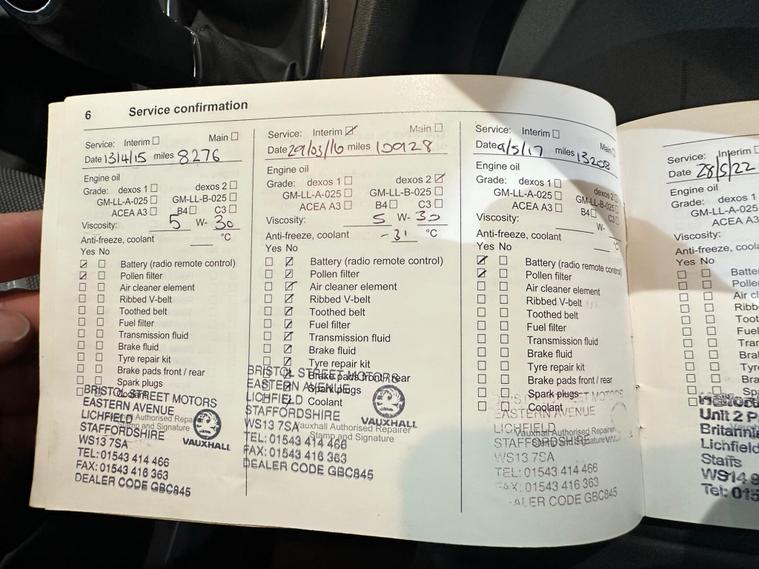 6 Service confirmation
Service: Interim Main
Date 13/4/15 miles 8276
Engine oil
Grade: dexos 1 dexos 2
GM-LL-A-025 GM-LL-B-025
ACEA A3 B4 C3
Viscosity: 5 W- 30
Anti-freeze, coolant °C
Yes No
Battery (radio remote control)
Pollen filter
Air cleaner element
Ribbed V-belt
Toothed belt
Fuel filter
Transmission fluid
Brake fluid
Tyre repair kit
Brake pads front / rear
Spark plugs
BRISTOL STREET MOTORS
EASTERN AVENUE
LICHFIELD
STAFFORDSHIRE
WS13 7SA
TEL: 01543 414 466
FAX: 01543 416 363
DEALER CODE GBC845
Authorised Repairer
Stamp and Signature
VAUXHALL
Service: Interim Main
Date 29/03/16 miles
Engine oil
Grade: dexos 1 dexos 2
GM-LL-A-025 GM-LL-B-025
ACEA A3 B4 C3
Viscosity: 5 W- 30
Anti-freeze, coolant °C
Yes No
Battery (radio remote control)
Pollen filter
Air cleaner element
Ribbed V-belt
Toothed belt
Fuel filter
Transmission fluid
Brake fluid
Tyre repair kit
Brake pads front / rear
Spark plugs
Coolant
BRISTOL STREET MOTORS
EASTERN AVENUE
LICHFIELD
STAFFORDSHIRE
WS13 7SA
TEL: 01543 414 466
FAX: 01543 416 363
DEALER CODE GBC845
Vauxhall Authorised Repairer
Stamp and Signature
VAUXHALL
Service: Interim Main
Date 9/5/17 miles 13208
Engine oil
Grade: dexos 1 dexos 2
GM-LL-A-025 GM-LL-B-025
ACEA A3 B4 C3
Viscosity: W-
Anti-freeze, coolant °C
Yes No
Battery (radio remote control)
Pollen filter
Air cleaner element
Ribbed V-belt
Toothed belt
Fuel filter
Transmission fluid
Brake fluid
Tyre repair kit
Brake pads front / rear
Spark plugs
Coolant
STREET MOTORS
EASTERN AVENUE
LICHFIELD
STAFFORDSHIRE
WS13 7SA
TEL: 01543 414 466
FAX: 01543 416 363
DEALER CODE GBC845
Vauxhall Authorised Repairer
Service: Interim
Date 28/5/22
Engine oil
Grade: dexos 1
GM-LL-A-025
ACEA A3
Viscosity:
Anti-freeze,
Yes No
Unit 2
Lichfield
Staffs
WS14 9
Tel: